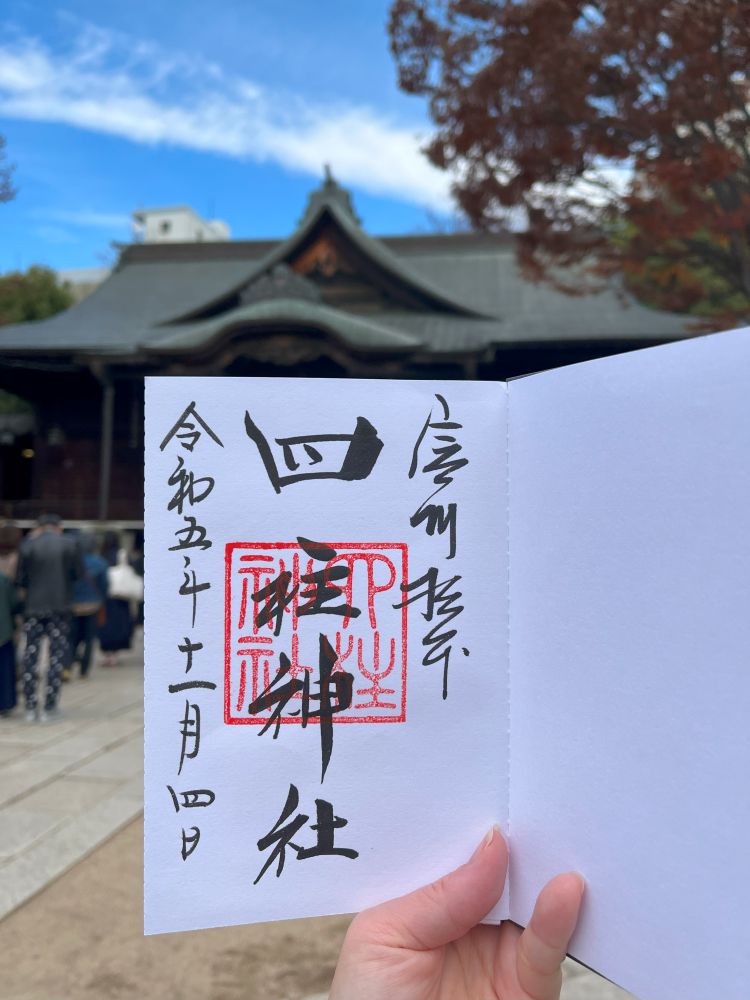 信州松本
四柱神社
四柱
神社
令和五年十一月四日